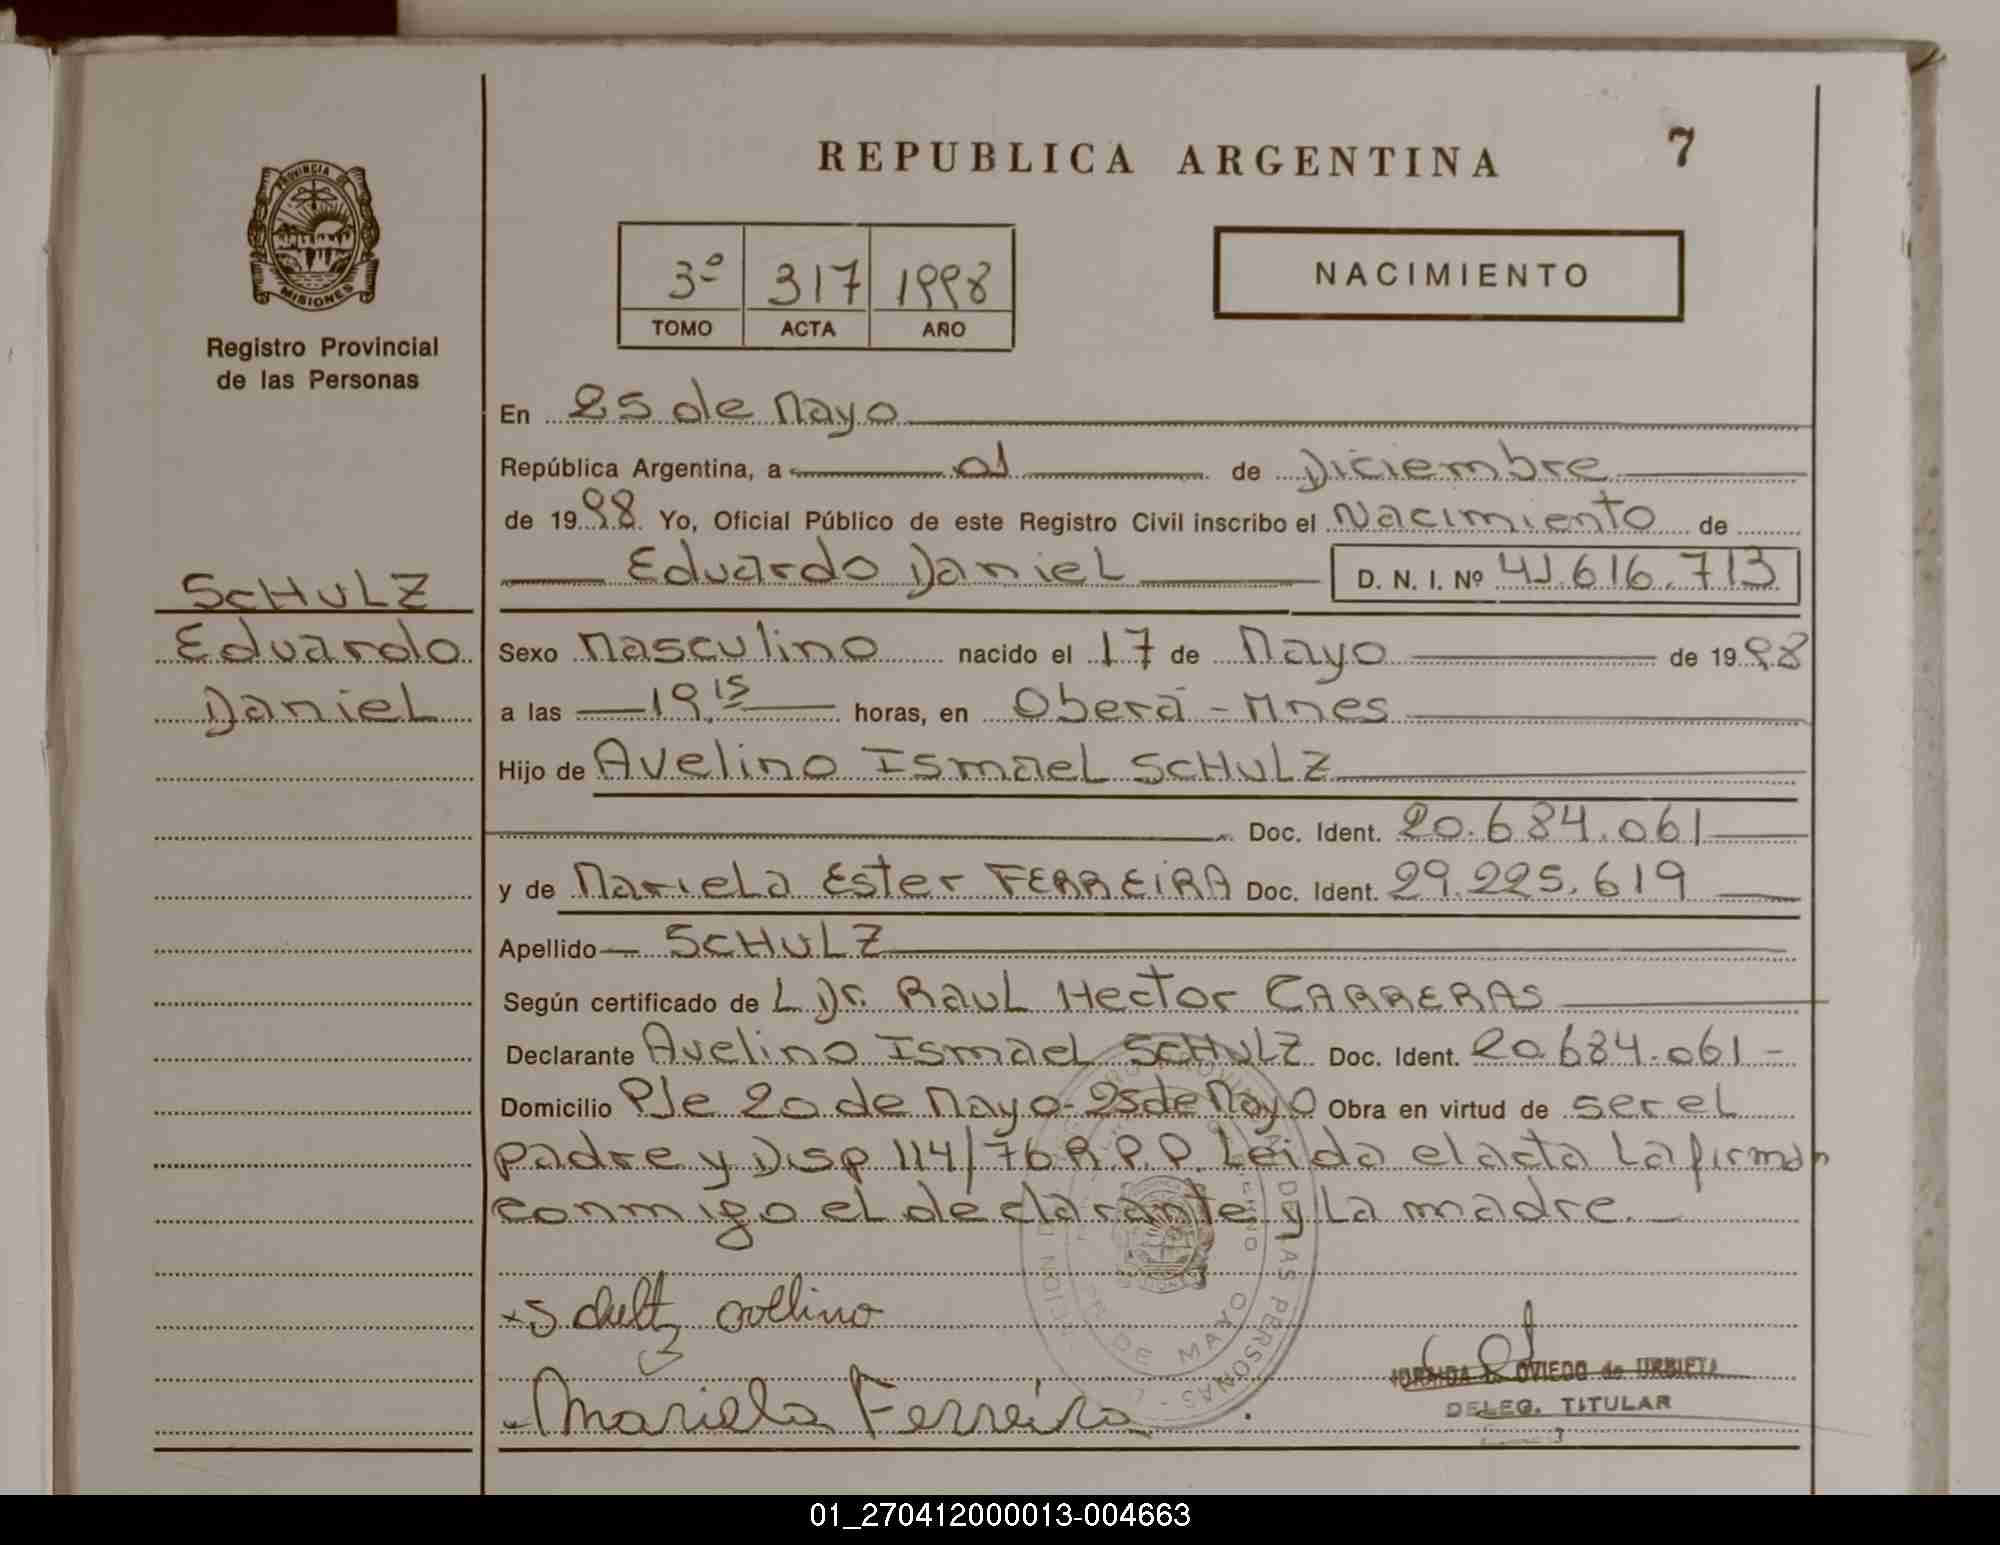 REPUBLICA ARGENTINA
7
PROVINCIA DE
MISIONES
Registro Provincial
de las Personas
3º 317 1998
TOMO ACTA AÑO
NACIMIENTO
En 25 de Mayo
República Argentina, a 01 de Diciembre
de 1998. Yo, Oficial Público de este Registro Civil inscribo el Nacimiento de
Eduardo Daniel D. N. I. Nº 41.616.713
SCHULZ
Eduardo
Daniel
Sexo Masculino nacido el 17 de Mayo de 1998
a las 19.15 horas, en Oberá - Mnes
Hijo de Avelino Ismael SCHULZ
Doc. Ident. 20.684.061
y de Mariela Ester FERREIRA Doc. Ident. 29.225.619
Apellido SCHULZ
Según certificado de L Dr. Raul Hector CARRERAS
Declarante Avelino Ismael SCHULZ Doc. Ident. 20.684.061 -
Domicilio Pje 20 de Mayo - 25 de Mayo Obra en virtud de ser el
padre y Disp 114/76 R.P.P. Leida el acta la firman
conmigo el declarante y la madre.
x Schultz avelino
Mariela Ferreira
DE LAS PERSONAS
DE MAYO
OVIEDO de URBIETA
DELEG. TITULAR
01_270412000013-004663